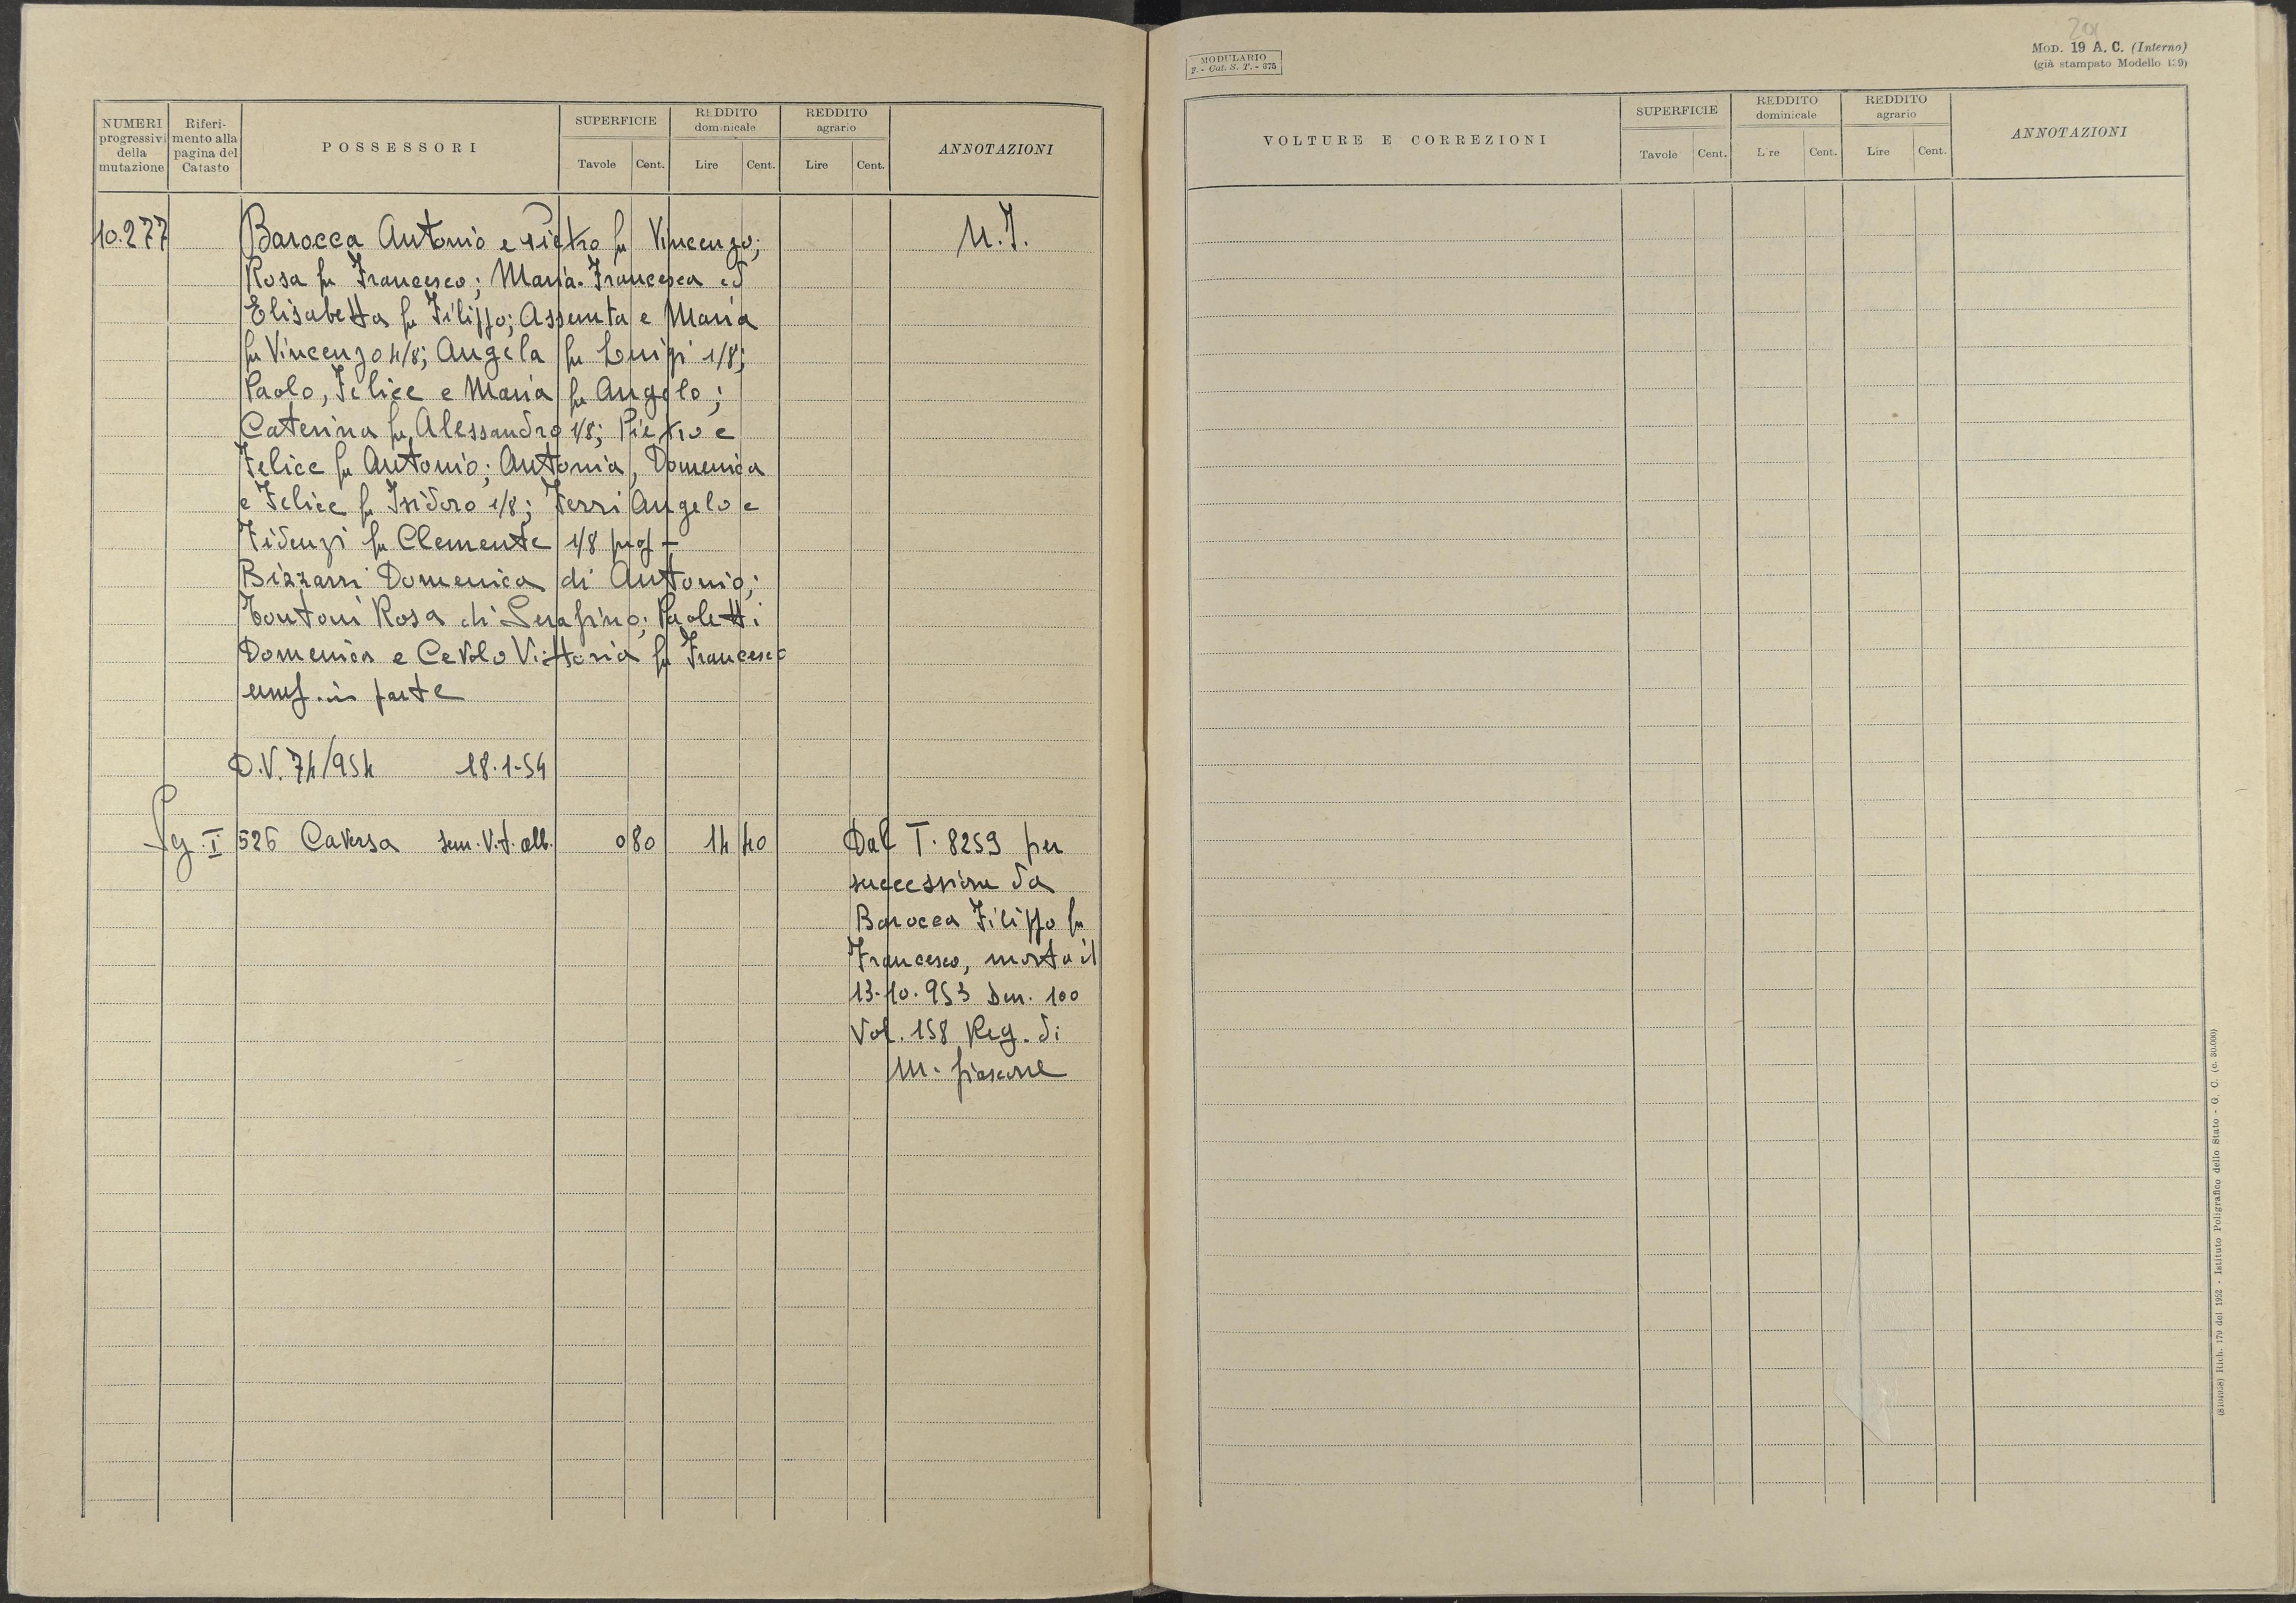 NUMERI progressivi della mutazione
Riferimento alla pagina del Catasto
POSSESSORI
SUPERFICIE
Tavole Cent.
REDDITO dominicale
Lire Cent.
REDDITO agrario
Lire Cent.
ANNOTAZIONI
10.277 Barocca Antonio e Pietro fu Vincenzo; U.I.
Rosa fu Francesco; Maria-Francesca ed
Elisabetta fu Filippo; Assunta e Maria
fu Vincenzo 4/8; Angela fu Luigi 1/8;
Paolo, Felice e Maria fu Angelo;
Caterina fu Alessandro 1/8; Pietro e
Felice fu Antonio; Antonia, Domenica
e Felice fu Isidoro 1/8; Ferri Angelo e
Fidenzi fu Clemente 1/8 prop -
Bizzarri Domenica di Antonio;
Tontoni Rosa di Serafino; Paoletti
Domenica e Cevolo Vittoria fu Francesco
usuf. in parte
D.V. 74/954 18-1-54
Sez. I 526 Caversa sem. V.t. alb. 0 80 14 40 Dal T. 8259 per
successione da
Barocca Filippo fu
Francesco, morto il
13-10-953 Den. 100
Vol. 158 Reg. di
M. fiascone
MODULARIO
F. - Cat. S. T. - 675
201
MOD. 19 A. C. (Interno)
(già stampato Modello 139)
VOLTURE E CORREZIONI
SUPERFICIE
Tavole Cent.
REDDITO dominicale
Lire Cent.
REDDITO agrario
Lire Cent.
ANNOTAZIONI
Rich. 179 del 1952 - Istituto Poligrafico dello Stato - G. C. (c. 30.000)